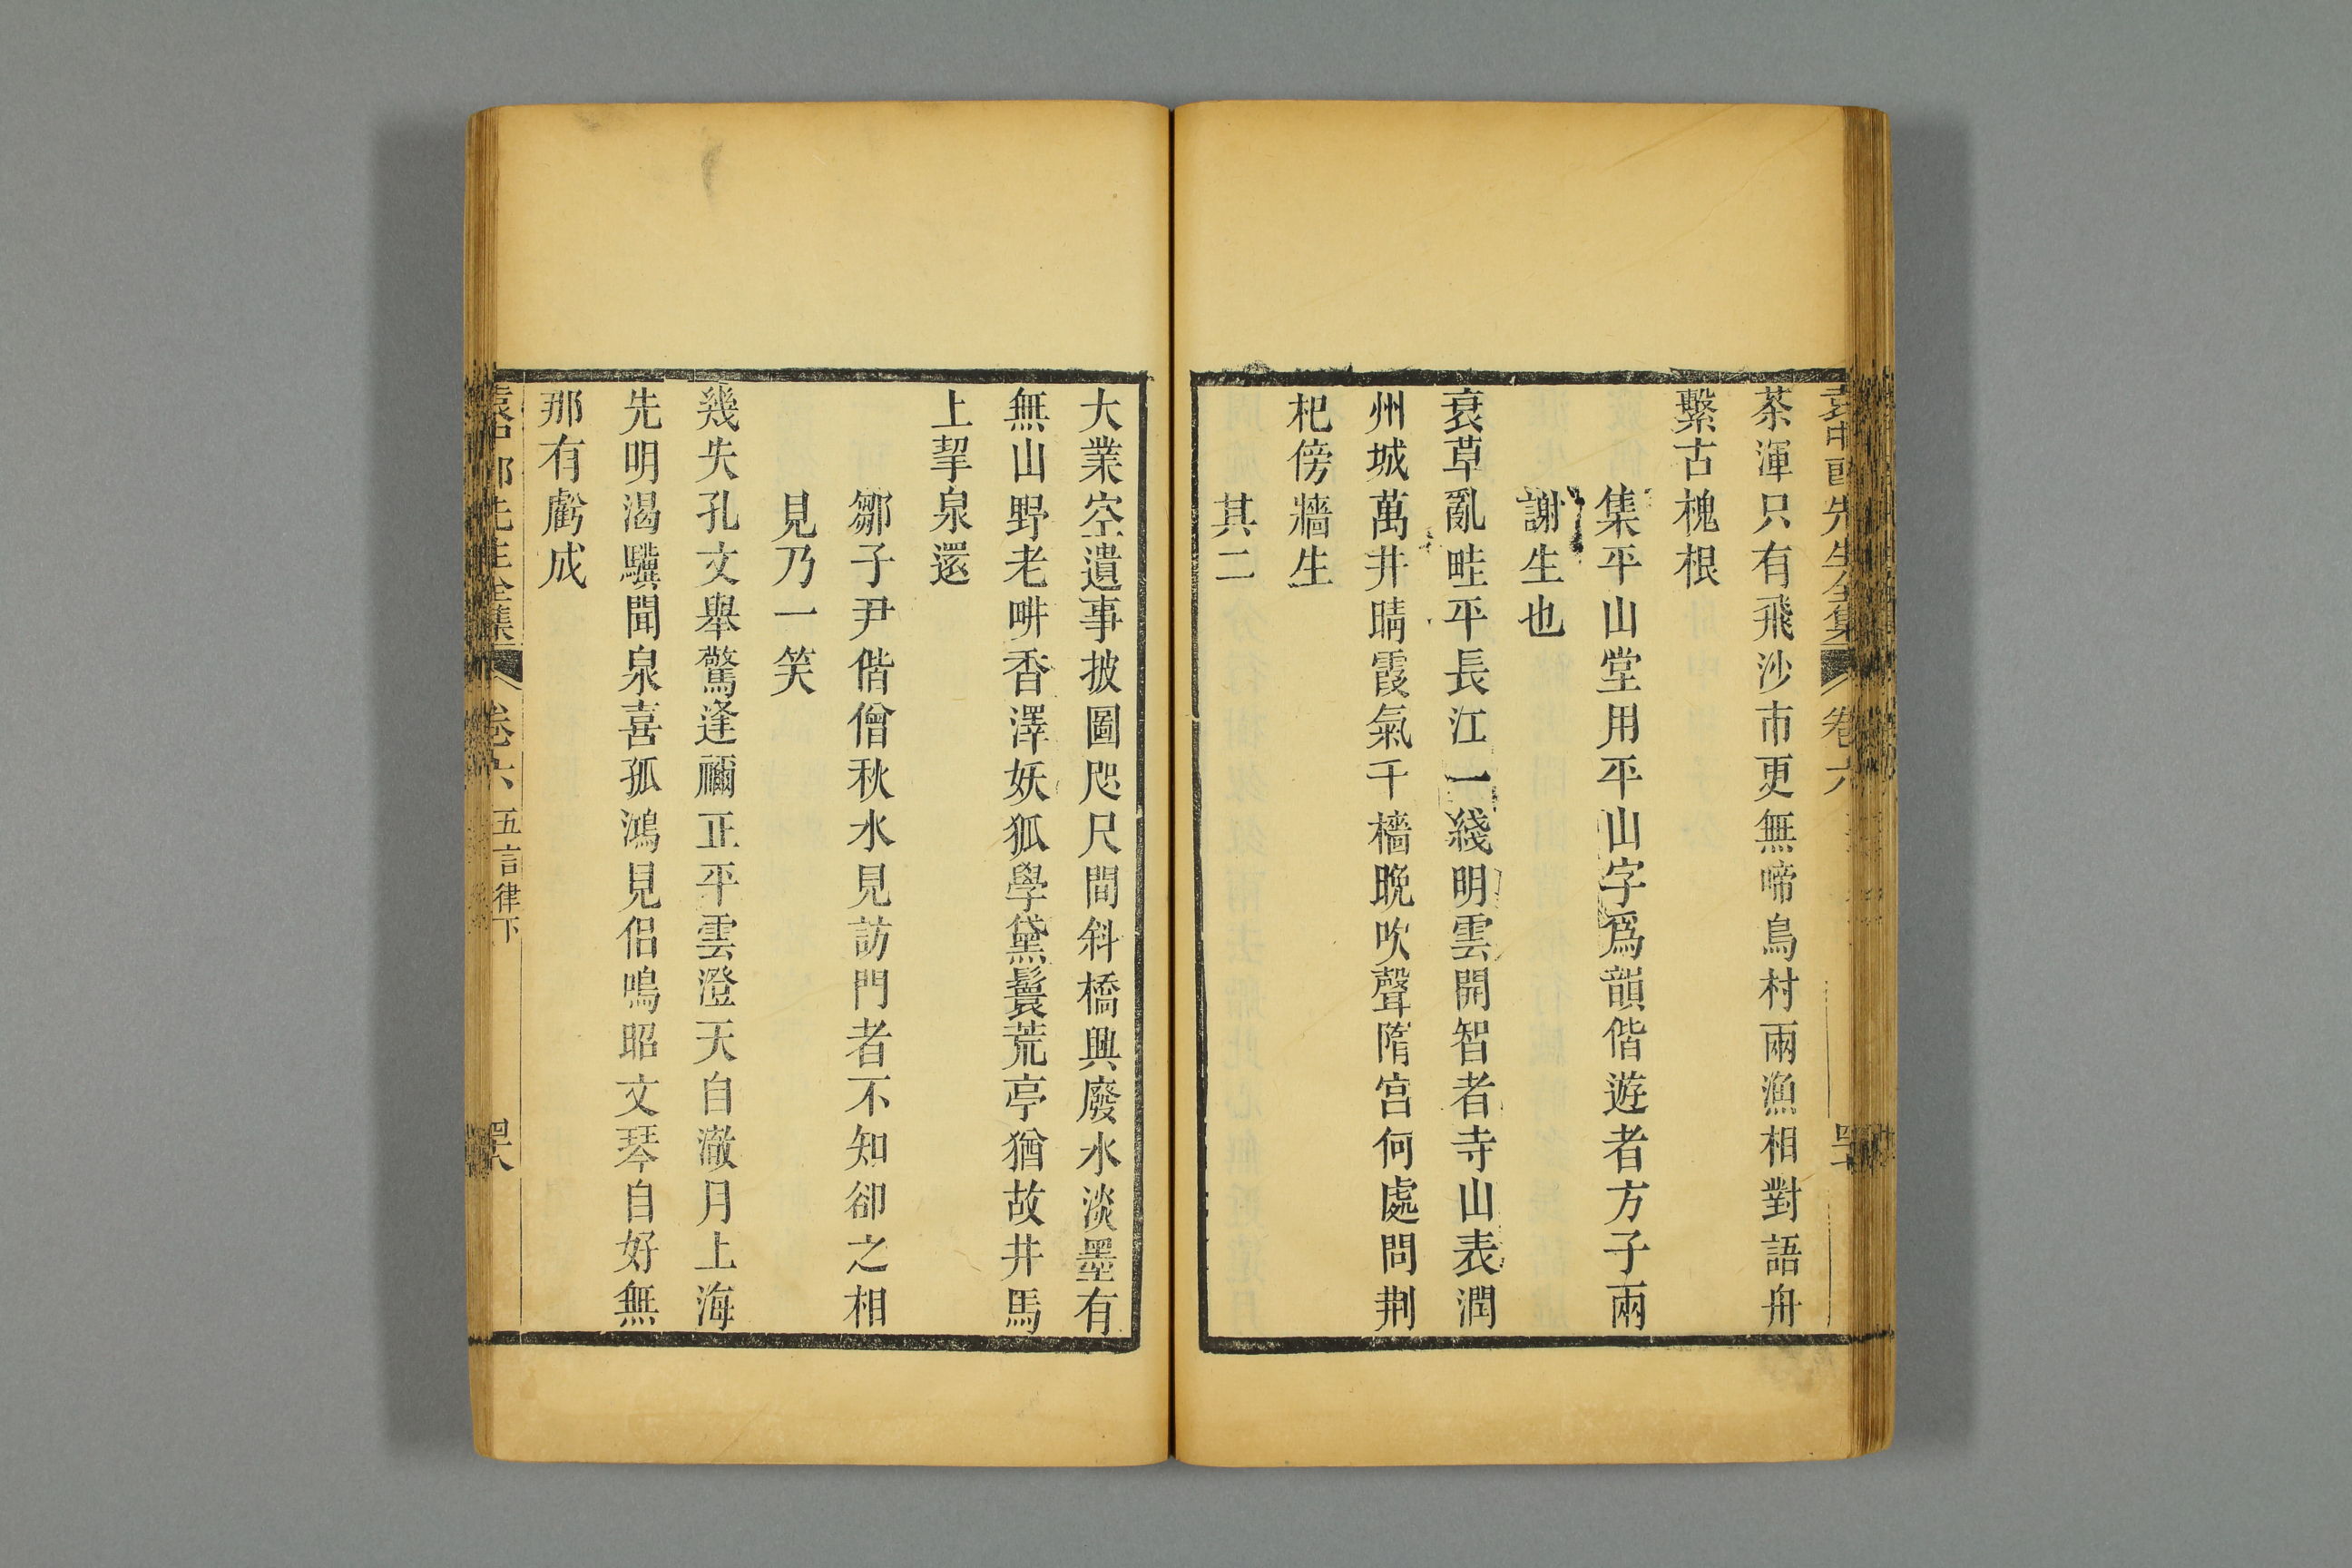 袁中郎先生全集 卷六
茶渾只有飛沙市更無啼鳥村兩漁相對語舟
繫古槐根
集平山堂用平山字爲韻偕遊者方子兩
謝生也
衰草亂畦平長江一綫明雲開智者寺山表潤
州城萬井晴霞氣千檣晚吹聲隋宮何處問荆
杞傍牆生
其二
大業空遺事披圖咫尺間斜橋興廢水淡墨有
無山野老畊香澤妖狐學黛鬟荒亭猶故井馬
上挈泉還
鄒子尹偕僧秋水見訪門者不知卻之相
見乃一笑
幾失孔文舉驚逢禰正平雲澄天自澈月上海
先明渴驥聞泉喜孤鴻見侶鳴昭文琴自好無
那有虧成
袁中郎先生全集 卷六 五言律下